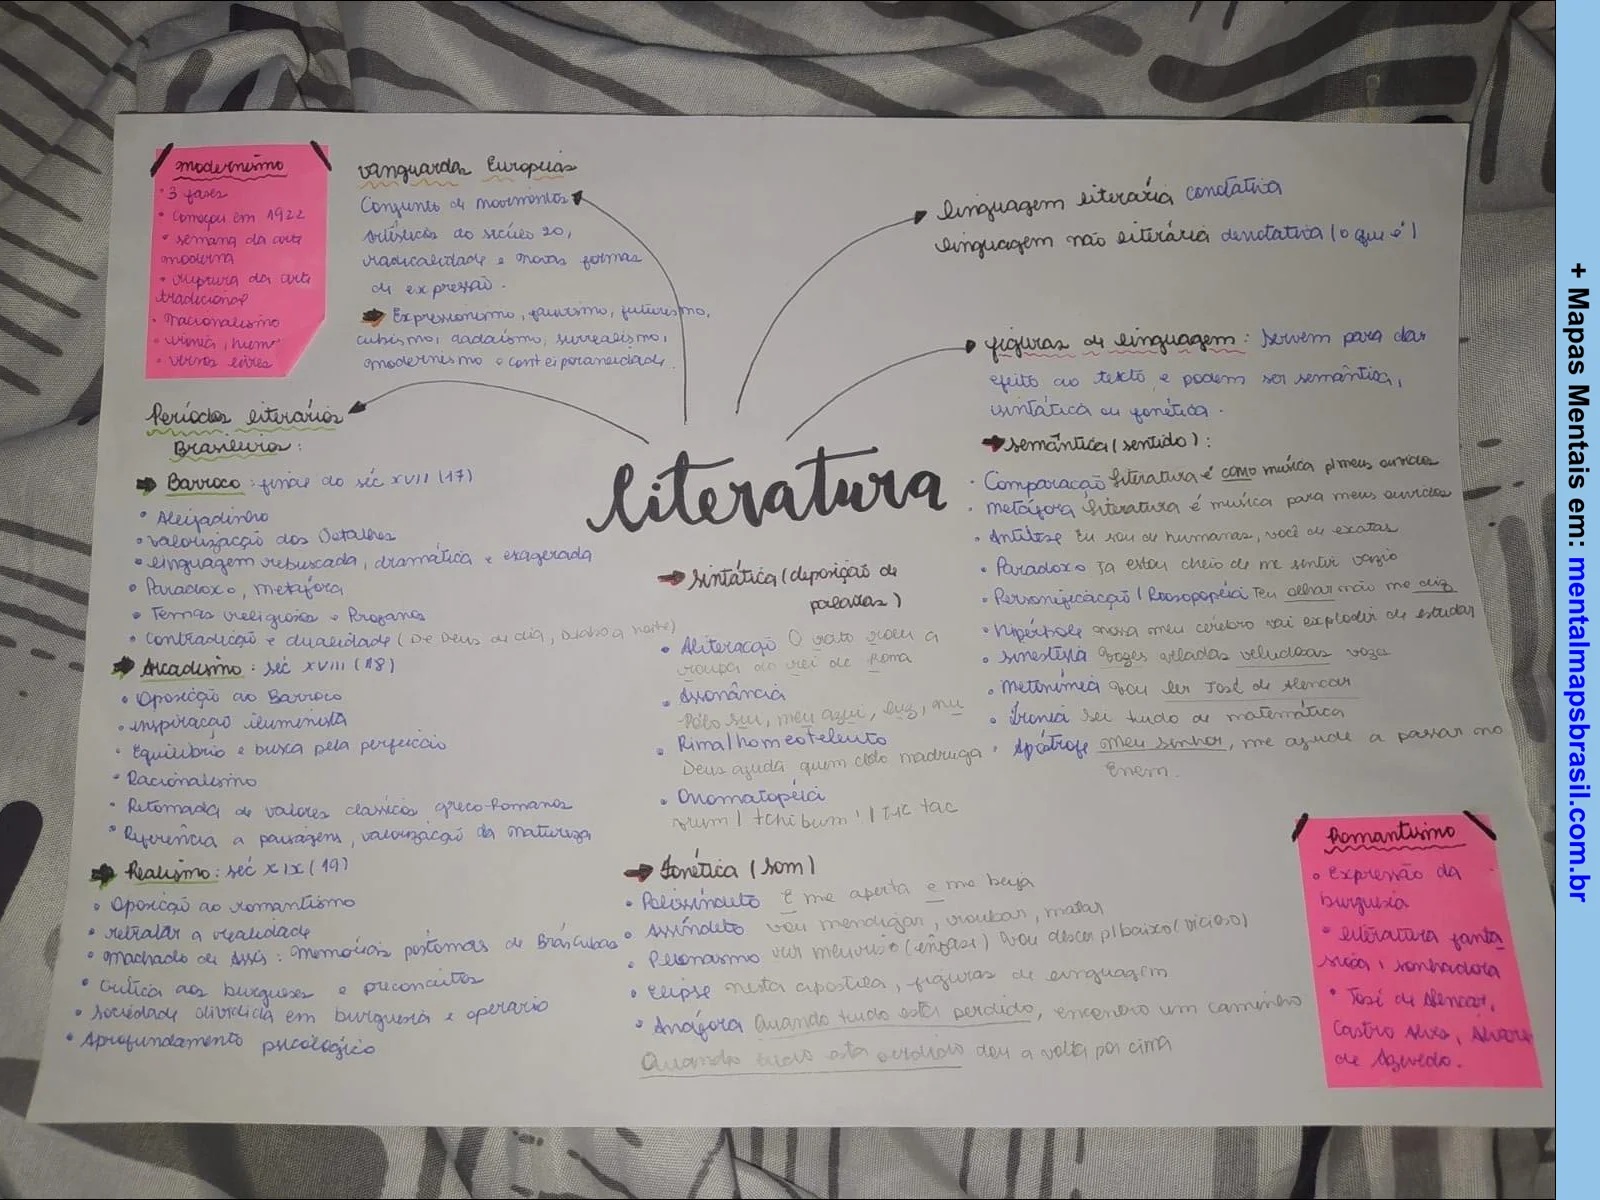 modernismo
• 3 fases
• Começou em 1922
• semana da arte
moderna
• ruptura da arte
tradicional
• nacionalismo
• ironia, humor
• versos livres
vanguardas Europeias
Conjunto de movimentos
artísticos do século 20,
radicalidade e novas formas
de expressão.
Expressionismo, fauvismo, futurismo,
cubismo, dadaísmo, surrealismo,
modernismo e
linguagem literária conotativa
linguagem não literária denotativa (o que é)
figuras de linguagem: Servem para dar
efeito ao texto, e podem ser semântica,
sintática ou fonética.
semântica (sentido):
• Comparação literatura é como música p/ meus ouvidos
• metáfora literatura é música para meus ouvidos
• Antítese Eu sou de humanas, você de exatas
• Paradoxo Ja estou cheio de me sentir vazio
• Personificação / Prosopopéia Teu olhar não me diz
• Hipérbole nossa meu cérebro vai explodir de estudar
• sinestesia veludosas vozes
• Metonímia vou ler José de Alencar
• Ironia Sei tudo de matemática
• Apóstrofe Meu senhor, me ajude a passar no
Enem.
literatura
Períodos literários
Brasileiros:
Barroco: final do séc XVII (17)
• Aleijadinho
• valorização dos Detalhes
• linguagem rebuscada, dramática e exagerada
• Paradoxo, metáfora
• Temas religiosos e Profanos
• Contradição e dualidade (De Deus de dia, Diabo a noite)
Arcadismo: séc XVIII (18)
• Oposição ao Barroco
• inspiração iluminista
• Equilíbrio e busca pela perfeição
• Racionalismo
• Retomada de valores clássicos greco-Romanos
• Referência a paisagens, valorização da natureza
Realismo: séc XIX (19)
• Oposição ao romantismo
• retratar a realidade
• machado de Assis: memórias póstumas de Brás Cubas
• Crítica aos burgueses e preconceitos
• Sociedade dividida em burguesia e operário
• Aprofundamento psicológico
sintática (disposição de
palavras)
• Aliteração O rato roeu a
roupa do rei de Roma
• Assonância
sul, meu azul, luz, nu
• Rima/homeoteleuto
Deus ajuda quem cedo madruga
• Onomatopéia
tchibum! / tic tac
Fonética (som)
• Polissíndeto E me aperta e me beija
• Assíndeto vou mendigar, roubar, matar
• Pleonasmo (ênfase) vou descer p/ baixo (vicioso)
• Elipse nesta apostila, figuras de linguagem
• Anáfora Quando tudo está perdido, encontro um caminho
Quando tudo está perdido dou a volta por cima
Romantismo
• Expressão da
burguesia
• literatura fanta
siosa, sonhadora
• José de Alencar,
Castro Alves, Álvares
de Azevedo.
+ Mapas Mentais em: mentalmapsbrasil.com.br